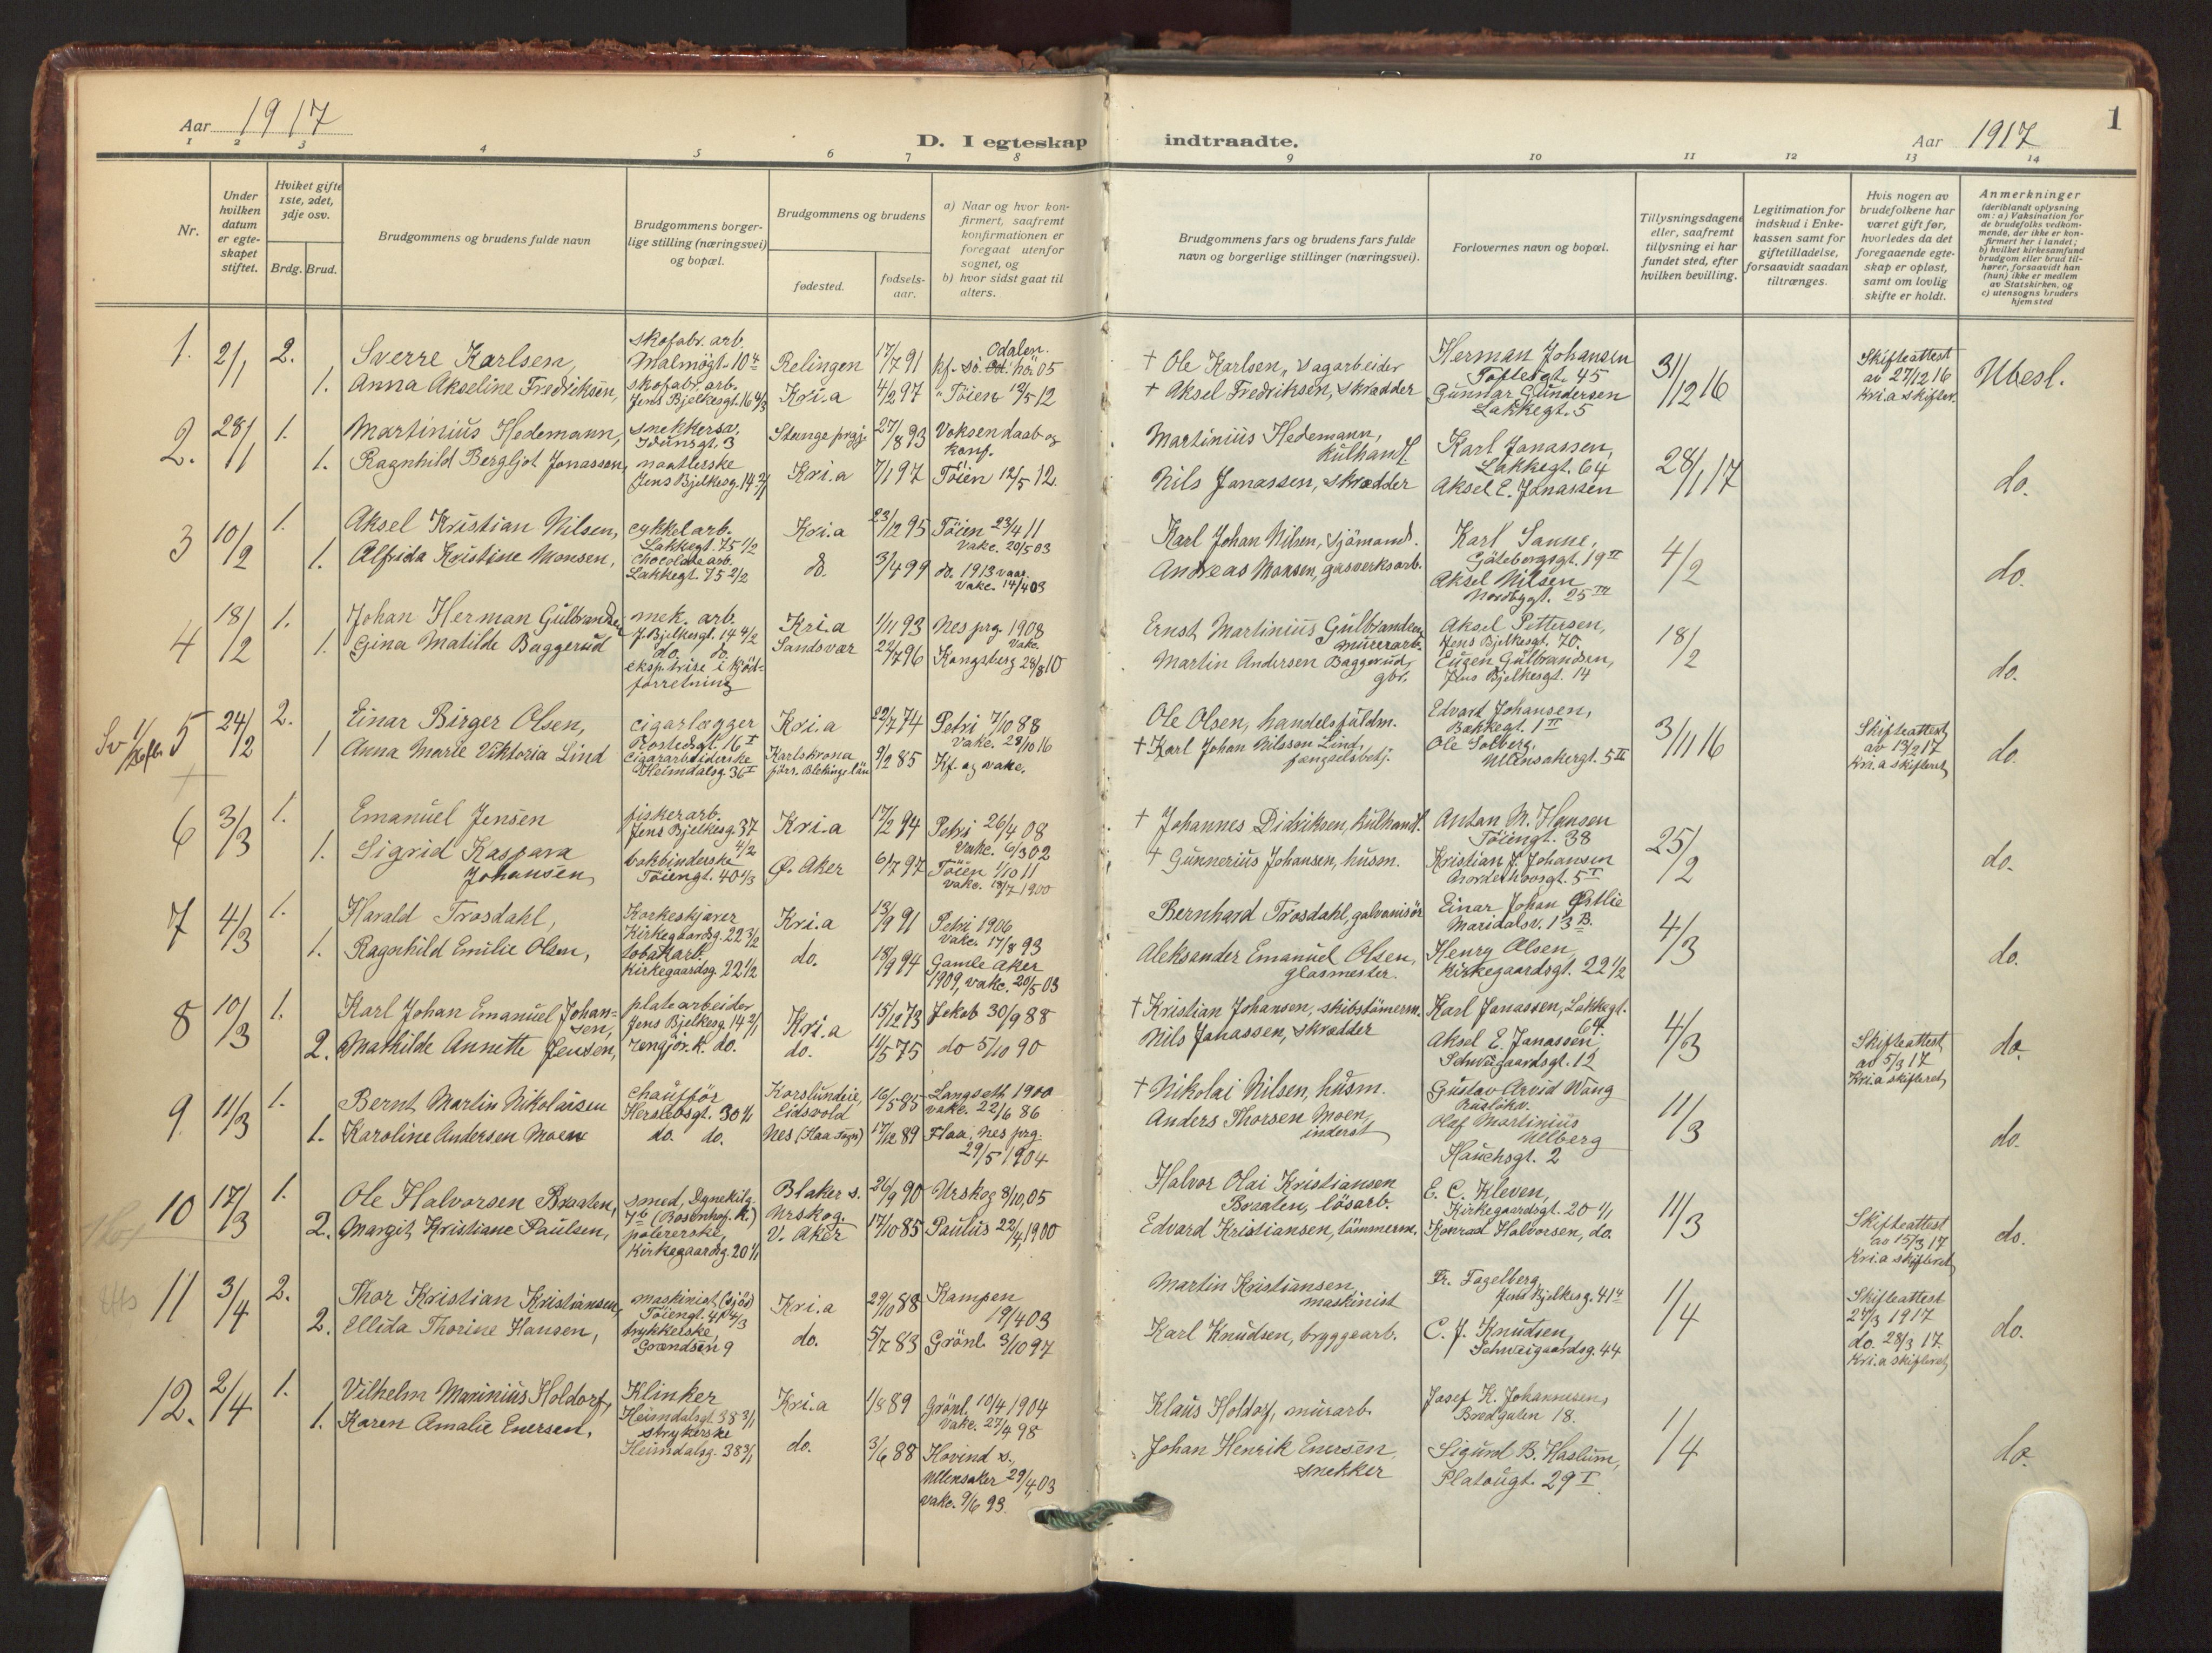 Aar 1917
D. I egteskap indtraadte.
Aar 1917
1
1 2 3 4 5 6 7 8 9 10 11 12 13 14
Nr.
Under hvilken datum er egteskapet stiftet.
Hviket gifte 1ste, 2det, 3dje osv.
Brdg. Brud.
Brudgommens og brudens fulde navn
Brudgommens borgerlige stilling (næringsvei) og bopæl.
Brudgommens og brudens
fødested.
fødselsaar.
a) Naar og hvor konfirmert, saafremt konfirmationen er foregaat utenfor sognet, og
b) hvor sidst gaat til alters.
Brudgommens fars og brudens fars fulde navn og borgerlige stillinger (næringsvei).
Forlovernes navn og bopæl.
Tillysningsdagene eller, saafremt tillysning ei har fundet sted, efter hvilken bevilling.
Legitimation for indskud i Enkekassen samt for giftetilladelse, forsaavidt saadan tiltrænges.
Hvis nogen av brudefolkene har været gift før, hvorledes da det foregaaende egteskap er opløst, samt om lovlig skifte er holdt.
Anmerkninger
(deriblandt oplysning om: a) Vaksination for de brudefolks vedkommende, der ikke er konfirmert her i landet;
b) hvilket kirkesamfund brudgom eller brud tilhører, forsaavidt han (hun) ikke er medlem av Statskirken, og
c) utensogns bruders hjemsted
1. 2/1 2. Sverre Karlsen, skofabr. arb. Malmögt. 10 4 Relingen 17/7 91 kf. sö. Odalen. hö. 05 † Ole Karlsen, vagarbeider Herman Johansen Toftesgt. 45 31/12 16 Skifteattest av 27/12 16 Kri.a skifter. Ubesl.
1. Anna Akseline Fredriksen, skofabr. arb. Jens Bjelkesgt. 16 4/3 Kri.a 4/2 97 " Töien 12/5 12 † Aksel Fredriksen, skrædder Gunnar Gundersen Lakkegt. 5
2. 28/1 1. Martinius Hedemann, snekkersv. Idunsgt. 3 Stange prgj. 27/8 93 Voksen daab og konf. Martinius Hedemann, kulhandl. Karl Janassen, Lakkegt. 64 28/1 17 do.
1. Ragnhild Bergljot Jonassen, naatlerske Jens Bjelkesg. 14 2/1 Kri.a 7/1 97 Töien 12/5 12. Nils Janassen, skrædder Aksel E. Janassen
3 10/2 1. Aksel Kristian Nilsen, cykkelarb. Lakkegt. 75 1/2 Kri.a 23/12 95 Töien 23/4 11 vakc. 20/5 03 Karl Johan Nilsen, sjömand. Karl Sanne, Göteborgsgt. 19 II 4/2 do.
1. Alfrida Kristine Monsen, chocolade arb. Lakkegt. 75 2/2 do. 3/4 99 do. 1913 vaar. vakc. 14/4 03 Andreas Monsen, gasverksarb. Aksel Nilsen Nordbygt. 25 III
4 18/2 1. Johan Herman Gulbrandsen mek. arb. J. Bjelkesgt. 14 4/2 Kri.a 1/11 93 Nes prg. 1908 Ernst Martinius Gulbrandsen, murerarb. Aksel Pettersen, Jens Bjelkesgt. 70. 18/2 do.
1. Gina Matilde Baggerud do. do. eksp.trise i kjötforretning Sandsvær 22/7 96 Vakc. Kongsberg 28/8 10 Martin Andersen Baggerud, gbr. Eugen Gulbrandsen, Jens Bjelkesgt. 14
5 24/2 2. Einar Birger Olsen, cigarlægger Rostedsgt. 16 I Kri.a 22/7 74 Petri 7/10 88 Vakc. 28/10 16 Ole Olsen, handelsfuldm. Edvard Johansen, Bakkegt. 1 II 3/11 16 Skifteattest av 13/2 17 Kri.a skifteret do.
1 Anna Marie Viktoria Lind cigararbeiderske Heimdalsg. 36 I Karlskrona förs. Blekinge län 9/2 85 Kf. og vakc. † Karl Johan Nilsson Lind, fængselsbetj. Ole Solberg, Ullensakergt. 5 II
6 3/3 1. Emanuel Jensen fiskerarb. Jens Bjelkesg. 37 4/2 Kri.a 17/2 94 Petri 26/4 08 Vakc. 6/3 02 † Johannes Didriksen, kulhandl. Anton M. Hansen Töiengt. 38 25/2 do.
1. Sigrid Kaspara Johansen, bokbinderske Töiengt. 40 1/3 Ö. Aker 6/7 97 Töien 1/10 11 vakc. 18/7 1900 † Gunnerius Johansen, husm. Kristian J. Johansen
7 4/3 1. Harald Trosdahl, Korkeskjærer Kirkegaardsg. 22 3/2 Kri.a 13/9 91 Petri 1906 vakc. 17/8 93 Bernhard Trosdahl, galvanisör Einar Johan Østlie Maridalsv. 13 B. 4/3 do.
1. Ragnhild Emilie Olsen, tobakarb. Kirkegaardsg. 22 1/2 do. 18/9 94 Gamle Aker 1909, vakc. 20/5 03 Aleksander Emanuel Olsen, glasmester. Henry Olsen, Kirkegaardsgt. 22 1/2
8 10/3 1. Karl Johan Emanuel Johansen, platearbeider Jens Bjelkesg. 14 2/1 Kri.a 15/12 73 Jakob 30/9 88 † Kristian Johansen, skibstömerm. Karl Janassen, Lakkegt. 64. 4/3 Skifteattest av 5/3 17 Kri.a skifteret do.
2. Mathilde Annette Jensen, rengjör. k. do. do. 11/5 75 do 5/10 90 Nils Janassen, skrædder Aksel E. Janassen, Schweigaardsgt. 12
9 11/3 1. Bernt Martin Nikolaisen chaufför Herslebsgt. 30 1/1 Korslundeie, Eidsvold 16/5 85 Langseth 1900 vakc. 22/6 86 † Nikolai Nilsen, husm. Gustav Arvid Wang Ruslökv. 11/3 do.
1. Karoline Andersen Moen do. do. Nes (Flaa sogn) 17/12 89 Flaa, Nes prg. 29/5 1904 Anders Thorsen Moen, inderst Olaf Martinius Ulberg Hauchsgt. 2
10 17/3 1. Ole Halvorsen Braaten, smed, Dynekilg. 7 b (Rosenhof. k.) Blaker s. Urskog. 26/9 90 Urskog 8/10,05 Halvor Olai Kristiansen Braaten, lösarb. E. C. Kleven, Kirkegaardsgt. 20 1/1 11/3 Skifteattest av 15/3 17 Kri.a skifteret do.
2. Margit Kristiane Paulsen, polererske, Kirkegaardsg. 20 1/1 V. Aker 17/10 85 Paulus 22/4, 1900 Edvard Kristiansen, tömmerm. Konrad Halvorsen, do.
11 3/4 2. Thor Kristian Kristiansen, maskinist (sjö) Töiengt. Kri.a 29/10 88 Kampen 19/4 03 Martin Kristiansen, maskinist Fr. Fagelberg, Jens Bjelkesg. 41 4 1/4 Skifteattest 27/3 1917 do. 28/3 17. Kri.a skifteret do.
2. Ellida Thorine Hansen, trykkerske, Grændsen 9 do. 5/7 83 Grönl. 3/10 97 Karl Knudsen, bryggearb. C. J. Knudsen, Schweigaardsg. 44
12. 2/4 1. Vilhelm Marinius Holdorf, Klinker Heimdalsgt. 38 3/1 Kri.a 1/8 89 Grönl. 10/4 1904 vakc. 27/4 98 Klaus Holdorf, murarb. Josef K. Johannesen, Bredgaten 18. 1/4 do.
1. Karen Amalie Enersen, strykerske Heimdalsg. 38 3/1 do. 3/6 88 Hovind s., Ullensaker 29/4,03 vakc. 9/6 93. Johan Henrik Enersen, snekker Sigurd B. Haslum, Platougt. 29 I.